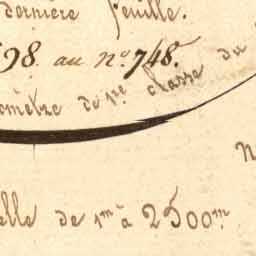 dernière feuille.
98. au n.º 748.
omètre de 1re classe du
N
elle de 1m à 2500m